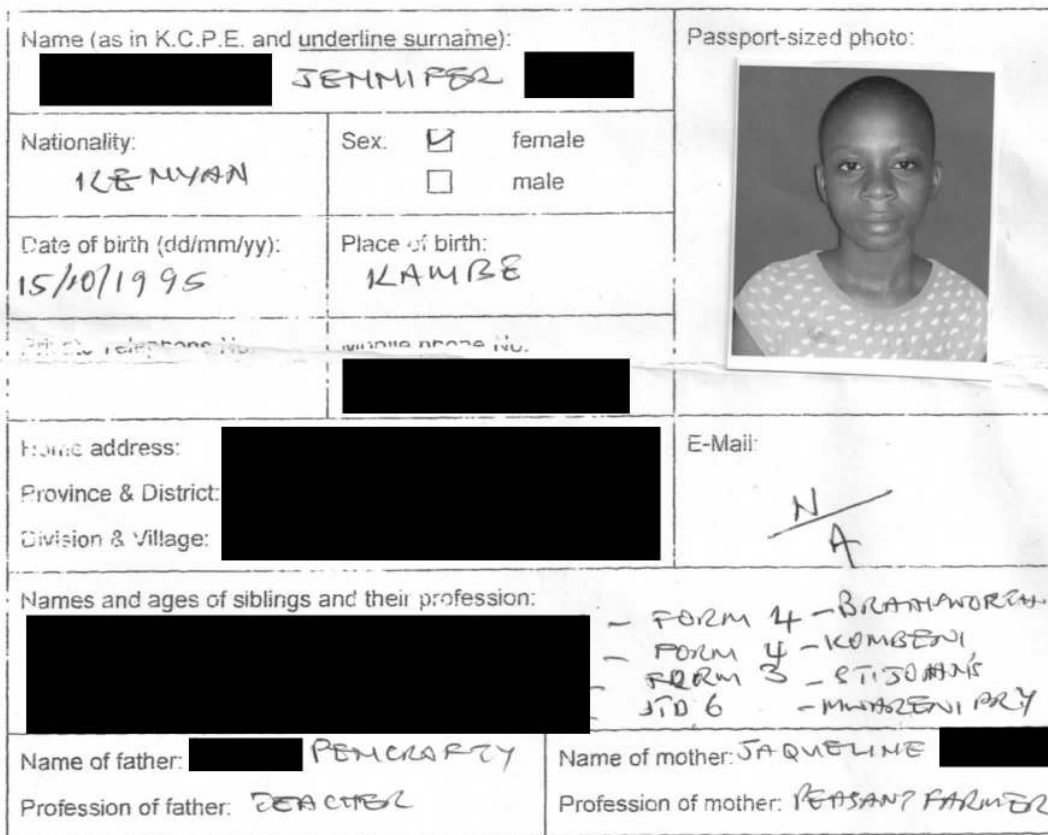 Name (as in K.C.P.E. and underline surname):
JENNIFER
Passport-sized photo:
Nationality:
KENYAN
Sex. female
male
Date of birth (dd/mm/yy):
15/10/1995
Place of birth:
KAMBE
Private Telephone No.
Mobile phone No.
Home address:
Province & District:
Division & Village:
E-Mail:
N/A
Names and ages of siblings and their profession:
- FORM 4 -
- FORM 4 - KOMBENI
- FORM 3 - ST. JOHN'S
- STD 6 - MWARENI PRY
Name of father: PENCRAFTY
Name of mother: JAQUELINE
Profession of father: TEACHER
Profession of mother: PEASANT FARMER